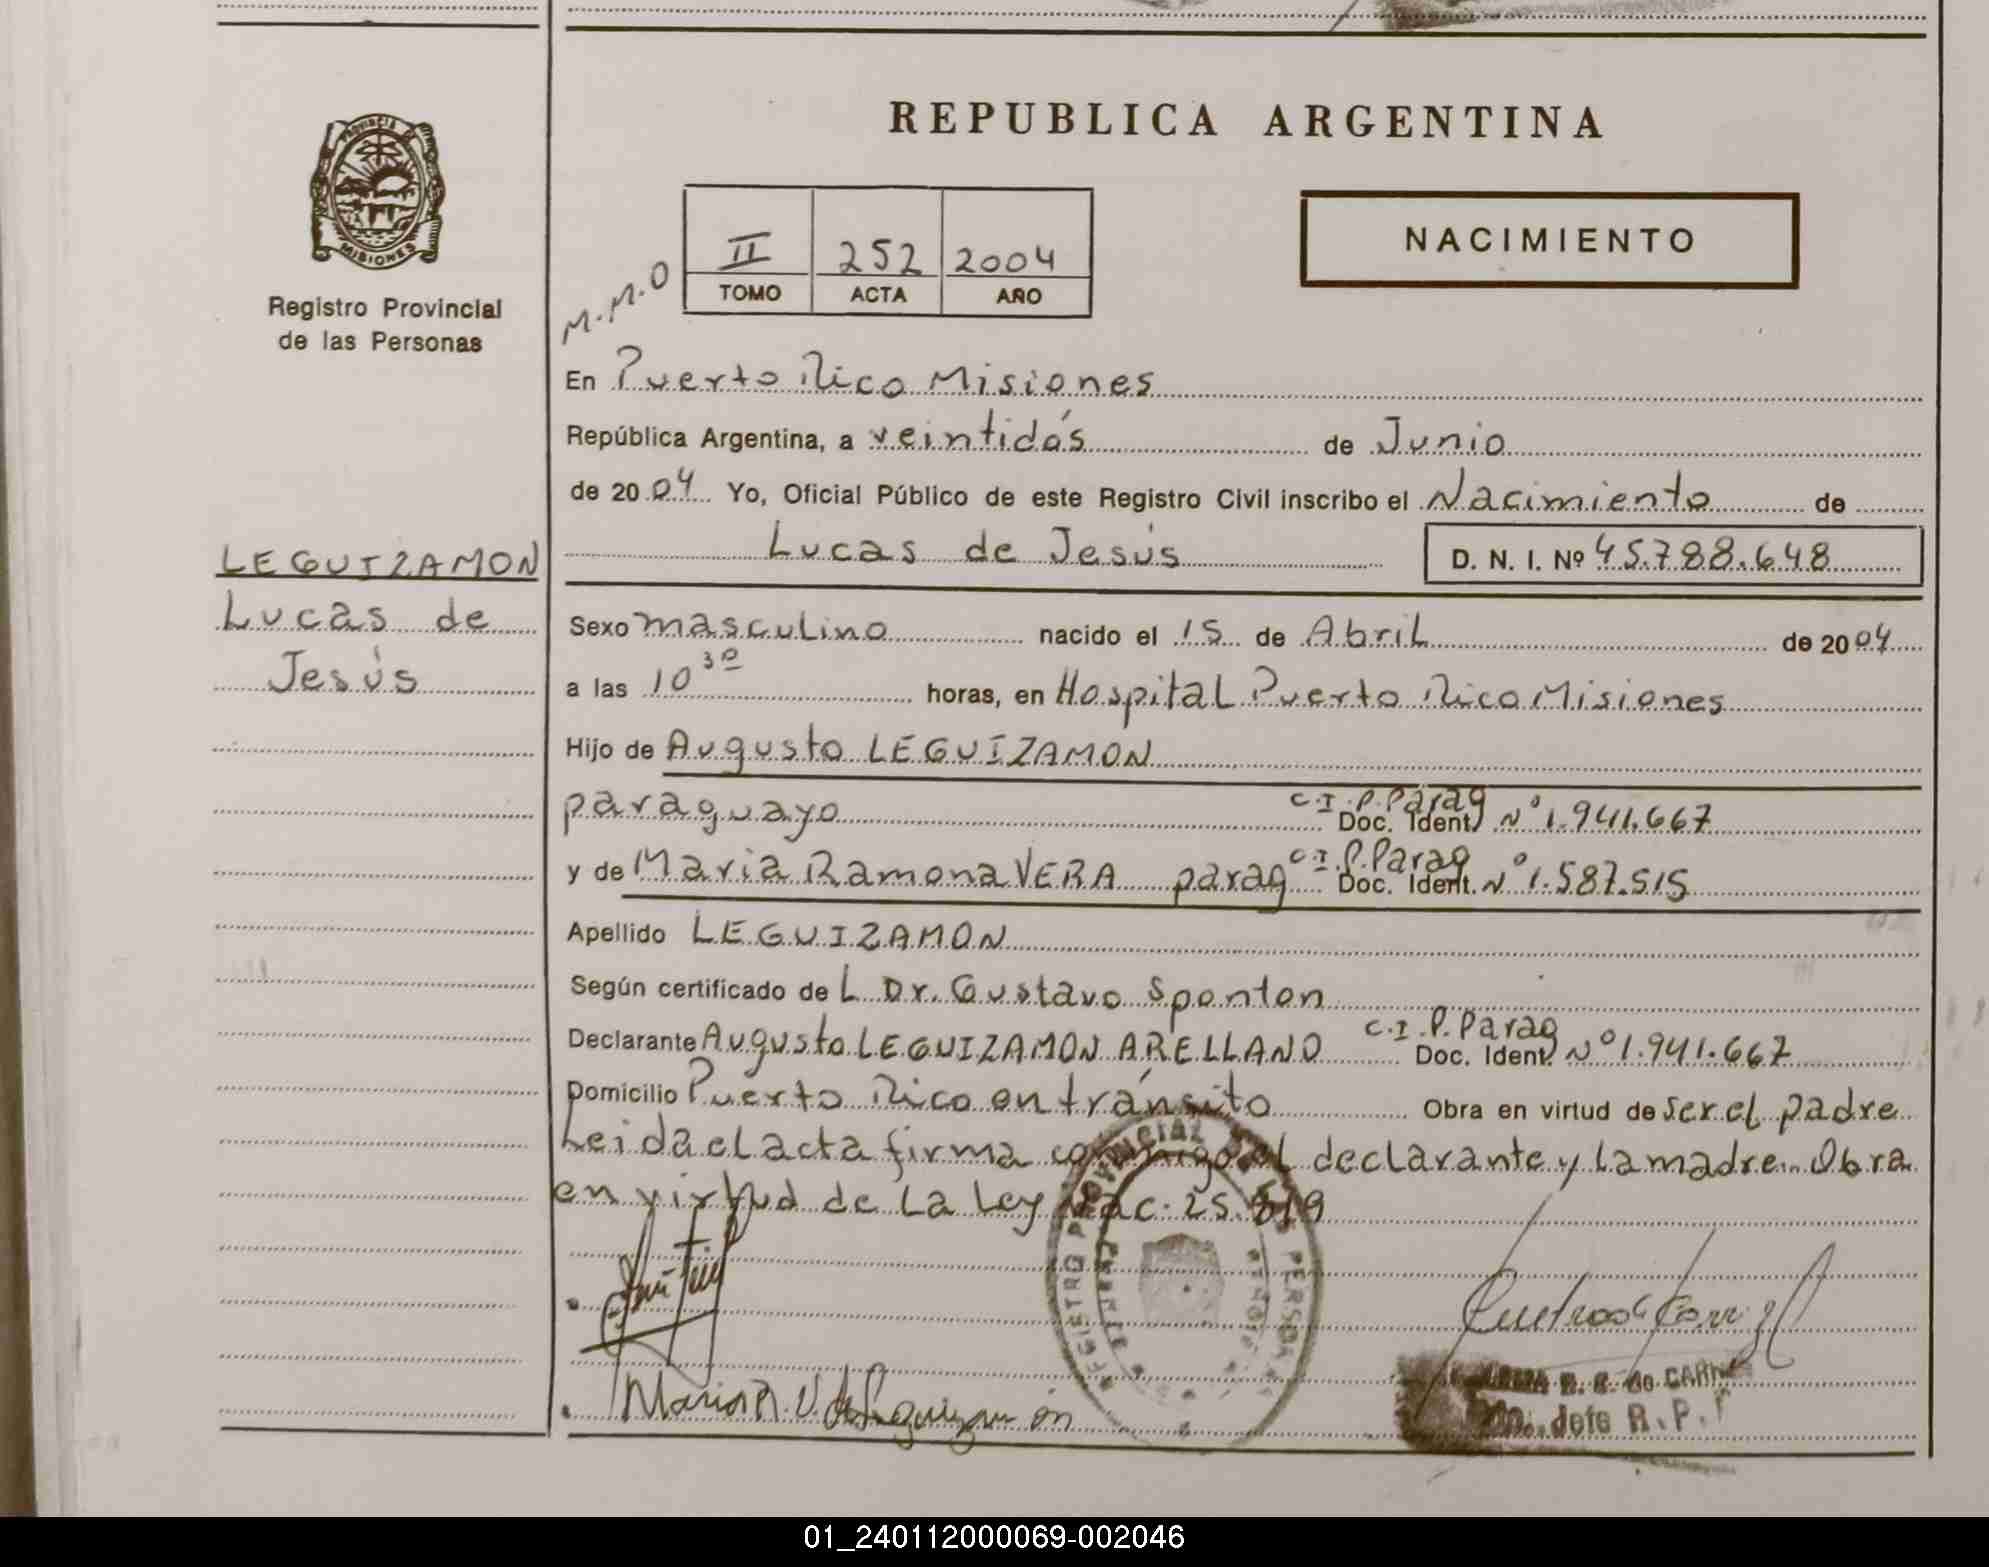 REPUBLICA ARGENTINA
PROVINCIA DE
MISIONES
Registro Provincial
de las Personas
II 252 2004
TOMO ACTA AÑO
NACIMIENTO
M.M.O
En Puerto Rico Misiones
República Argentina, a veintidós de Junio
de 2004 Yo, Oficial Público de este Registro Civil inscribo el Nacimiento de
Lucas de Jesús D. N. I. Nº 45.788.648
LEGUIZAMON
Lucas de
Jesús
Sexo masculino nacido el 15 de Abril de 2004
a las 10 30 horas, en Hospital Puerto Rico Misiones
Hijo de Augusto LEGUIZAMON
paraguayo C.I.P.Parag Doc. Ident. Nº 1.941.667
y de Maria Ramona VERA parag C.I.P.Parag Doc. Ident. Nº 1.587.515
Apellido LEGUIZAMON
Según certificado de L Dr. Gustavo Sponton
Declarante Augusto LEGUIZAMON ARELLANO C.I.P.Parag Doc. Ident. Nº 1.941.667
Domicilio Puerto Rico en tránsito Obra en virtud de ser el padre
Leida el acta firma conmigo el declarante y la madre. Obra
en virtud de la Ley Nac. 25.819
REGISTRO PROVINCIAL DE LAS PERSONAS
Maria R. V. de Leguizamón
de CARR
Jefe R. P. P
01_240112000069-002046